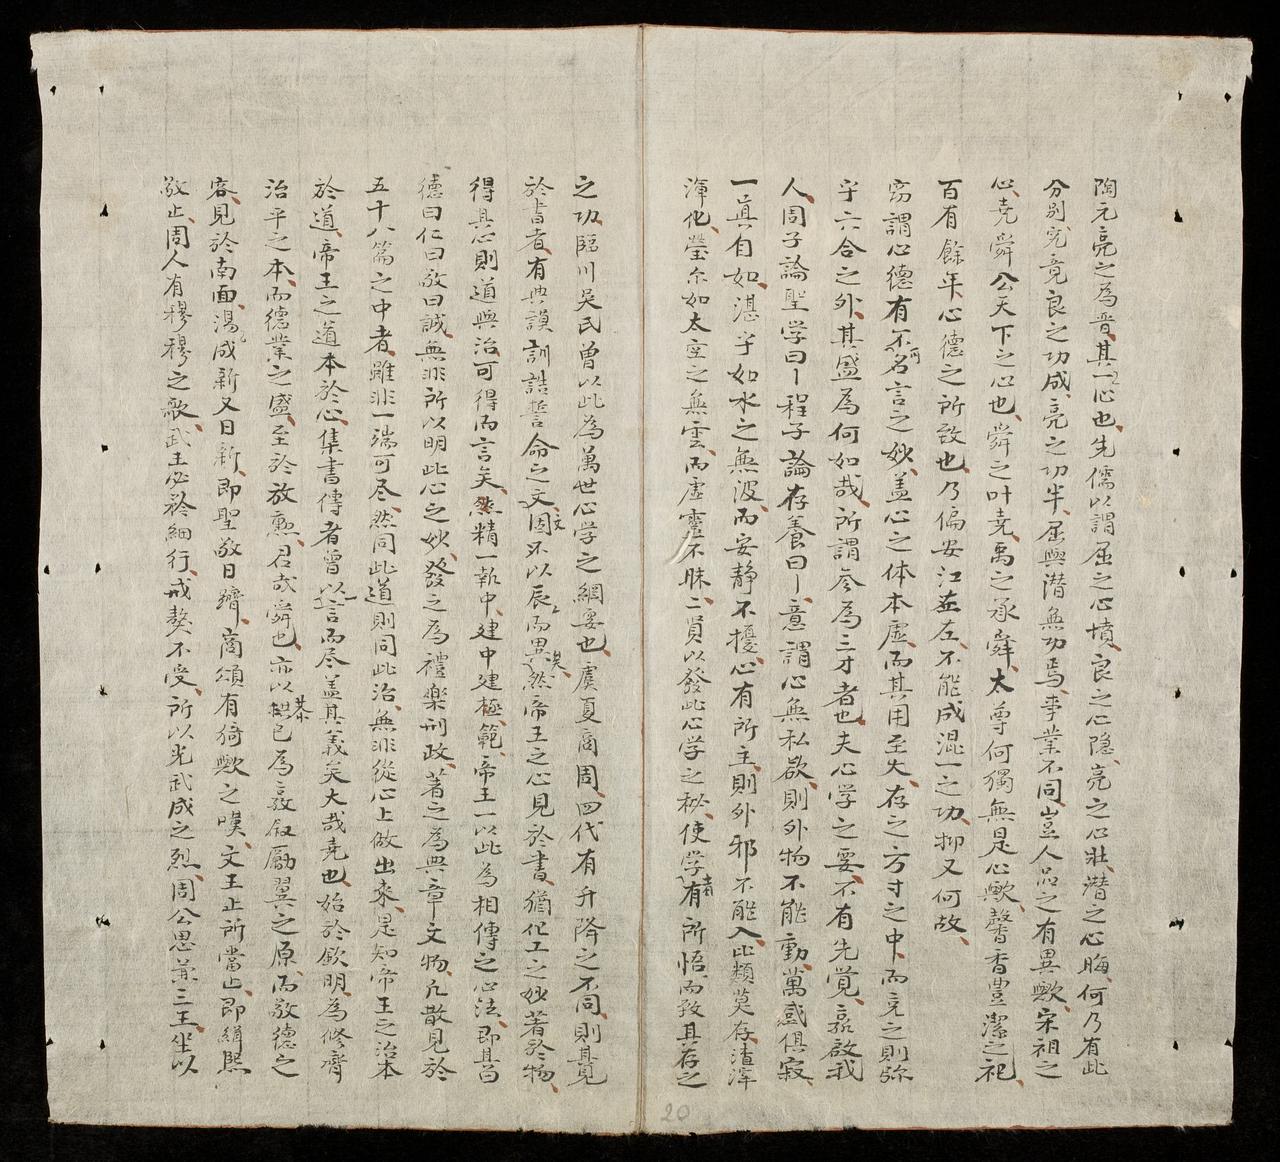 陶元亮之為晋其一心也先儒以謂屈之心憤良之心隐亮之心壯潜之心晦何乃有此
分别究竟良之功成亮之功半屈與潜無功焉事業不同豈人品之有異歟宋祖之
心尭舜公天下之心也舜之叶尭禹之承舜太尊何獨無是心歟馨香豊潔之祀
百有餘年心德之所致也乃偏安江左不能成混一之功抑又何故
窃謂心德有不可名言之妙盖心之体本虚而其用至大存之方寸之中而充之則弥
乎六合之外其盛為何如哉所謂参為三才者也夫心学之要不有先覚孰啟我
人周子論聖学曰一程子論存養曰一意謂心無私欲則外物不能動萬感俱寂
一眞自如湛乎如水之無波而安静不擾心有所主則外邪不能入此類莫存渣滓
渾化瑩尔如太空之無雲而虚霊不昧二員以發此心学之秘使学者有所悟而致其存之
之功臨川吴氏曽以此為萬世心学之綱要也虞夏商周四代有升降之不同則其見
於書者有典謨訓誥誓命之文固不以辰而異然帝王之心見於書猶化工之妙著於物
得其心則道與治可得而言矣然精一執中建中建極範帝王一以此為相傳之心法即其曰
德曰仁曰敬曰誠無非所以明此心之妙發之為禮楽刑政著之為典章文物凡散見於
五十八篇之中者雖非一端可尽然同此道則同此治無非從心上做出来是知帝王之治本
於道帝王之道本於心集書傳者曽以一言而尽盖其義矣大哉尭也始於欽明為修齊
治平之本而德業之盛至於放勲君哉舜也亦以恭已為敦叙勵翼之原而敬德之
容見於南面湯成新又日新即聖敬日躋商頌有猗歟之嘆文王止所當止即緝熙
敬止周人有穆穆之歌武王必矜細行戒獒不受所以光武成之烈周公思兼三王坐以
20